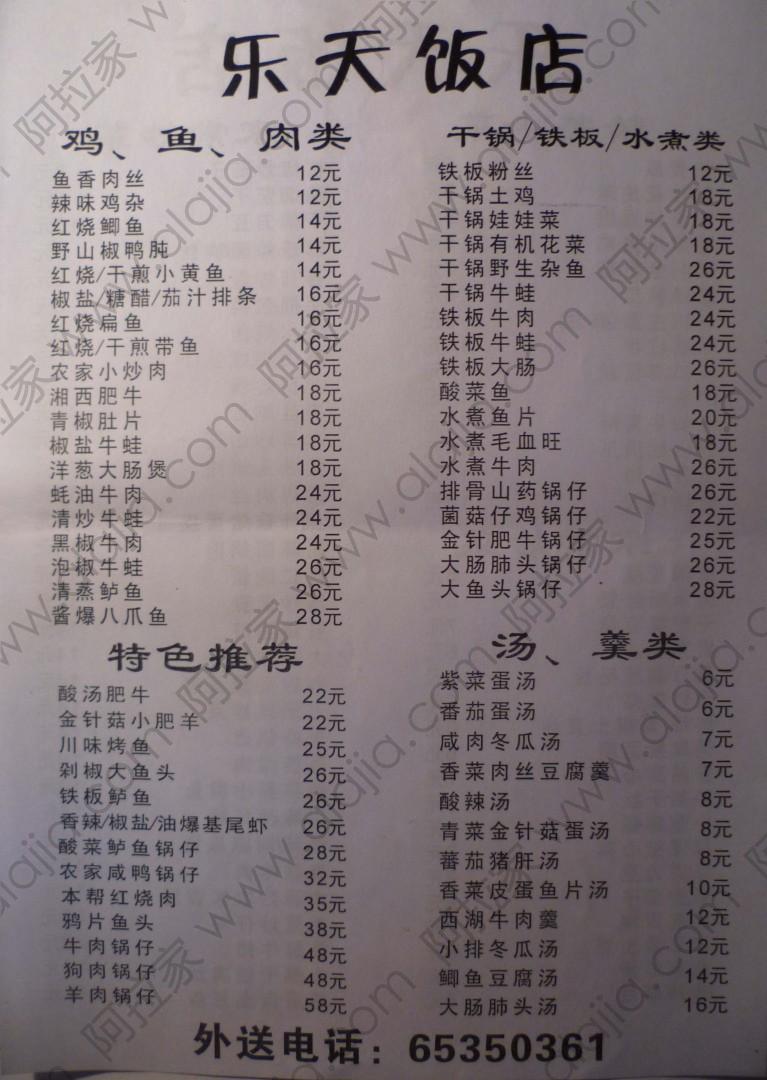 乐天饭店
鸡、鱼、肉类
鱼香肉丝 12元
辣味鸡杂 12元
红烧鲫鱼 14元
野山椒鸭肫 14元
红烧/干煎小黄鱼 14元
椒盐/糖醋/茄汁排条 16元
红烧扁鱼 16元
红烧/干煎带鱼 16元
农家小炒肉 16元
湘西肥牛 18元
青椒肚片 18元
椒盐牛蛙 18元
洋葱大肠煲 18元
蚝油牛肉 24元
清炒牛蛙 24元
黑椒牛肉 24元
泡椒牛蛙 26元
清蒸鲈鱼 26元
酱爆八爪鱼 28元
特色推荐
酸汤肥牛 22元
金针菇小肥羊 22元
川味烤鱼 25元
剁椒大鱼头 26元
铁板鲈鱼 26元
香辣/椒盐/油爆基尾虾 26元
酸菜鲈鱼锅仔 28元
农家咸鸭锅仔 32元
本帮红烧肉 35元
鸦片鱼头 38元
牛肉锅仔 48元
狗肉锅仔 48元
羊肉锅仔 58元
干锅/铁板/水煮类
铁板粉丝 12元
干锅土鸡 18元
干锅娃娃菜 18元
干锅有机花菜 18元
干锅野生杂鱼 26元
干锅牛蛙 24元
铁板牛肉 24元
铁板牛蛙 24元
铁板大肠 26元
酸菜鱼 18元
水煮鱼片 20元
水煮毛血旺 18元
水煮牛肉 26元
排骨山药锅仔 26元
菌菇仔鸡锅仔 22元
金针肥牛锅仔 25元
大肠肺头锅仔 26元
大鱼头锅仔 28元
汤、羹类
紫菜蛋汤 6元
番茄蛋汤 6元
咸肉冬瓜汤 7元
香菜肉丝豆腐羹 7元
酸辣汤 8元
青菜金针菇蛋汤 8元
蕃茄猪肝汤 8元
香菜皮蛋鱼片汤 10元
西湖牛肉羹 12元
小排冬瓜汤 12元
鲫鱼豆腐汤 14元
大肠肺头汤 16元
外送电话：65350361
阿拉家 www.alajia.com